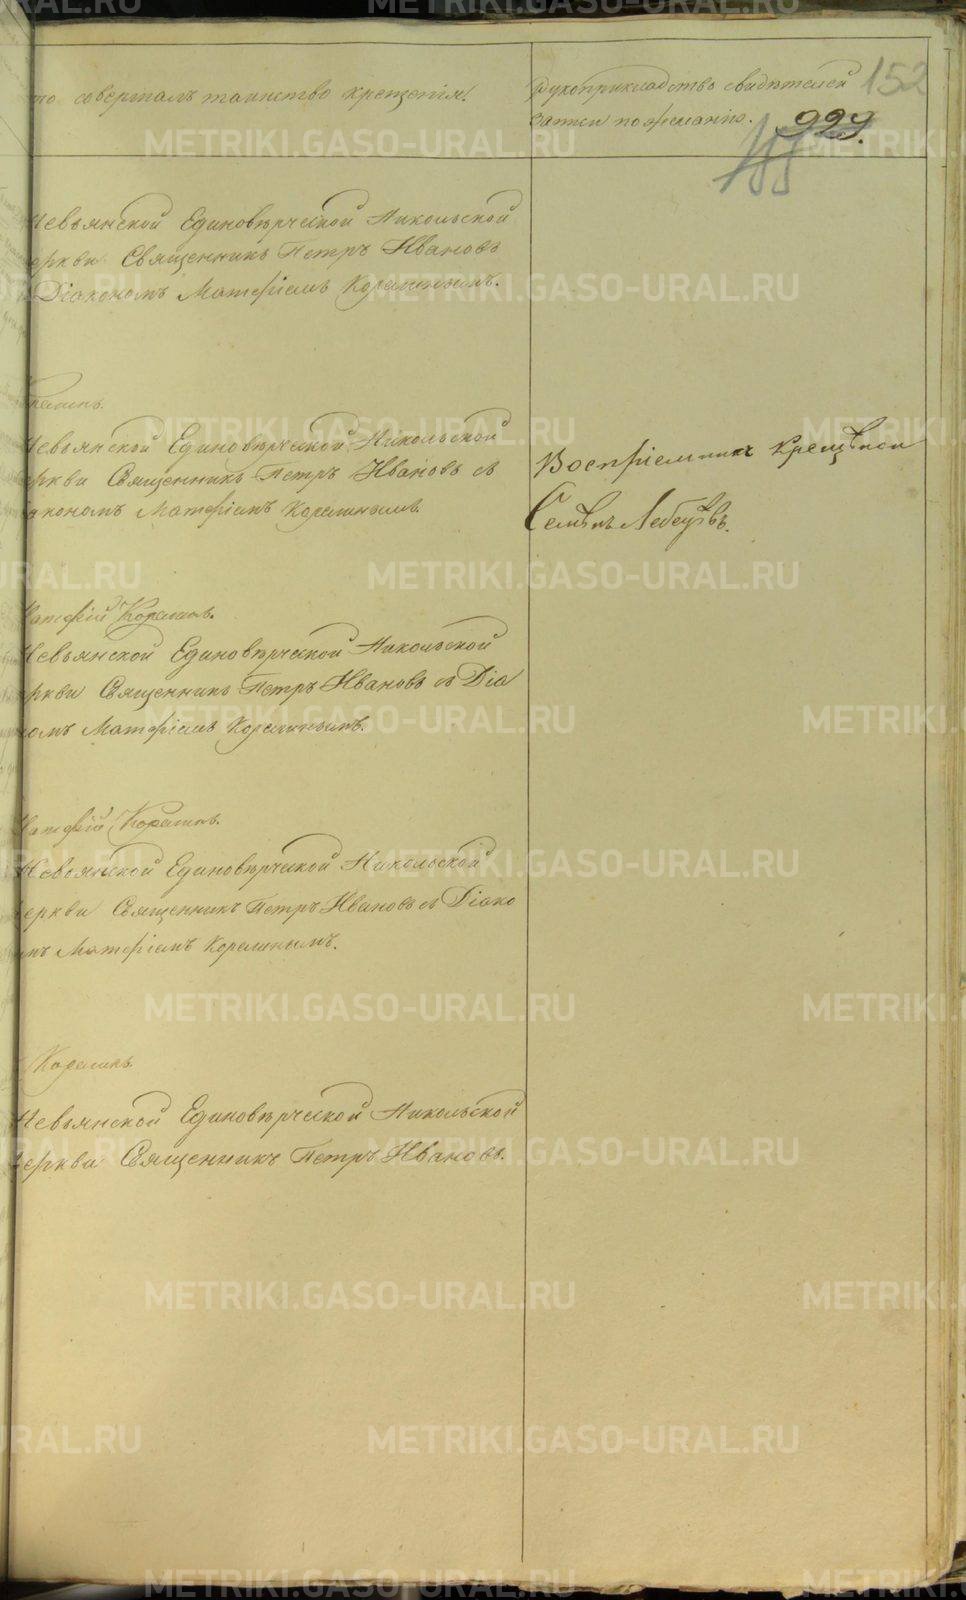 то совершалъ таинство крещенія.
Рукоприкладство свидѣтелей
записи по желанію.
152
929.
Невьянской Единовѣрческой Никольской
церкви Священникъ Петръ Ивановъ
Діакономъ Матфіемъ Корелинымъ.
Корелинъ.
Невьянской Единовѣрческой Никольской
еркви Священникъ Петръ Ивановъ съ
акономъ Матфіемъ Корелинымъ.
Воспріемникъ
Семенъ
Матфій Корелинъ.
Невьянской Единовѣрческой Никольской
ркви Священникъ Петръ Ивановъ съ Діа
омъ Матфіемъ Корелинымъ.
Матфій Корелинъ.
Невьянской Единовѣрческой Никольской
еркви Священникъ Петръ Ивановъ съ Діако
мъ Матфіемъ Корелинымъ.
Корелинъ
Невьянской Единовѣрческой Никольской
церкви Священникъ Петръ Ивановъ.
METRIKI.GASO-URAL.RU